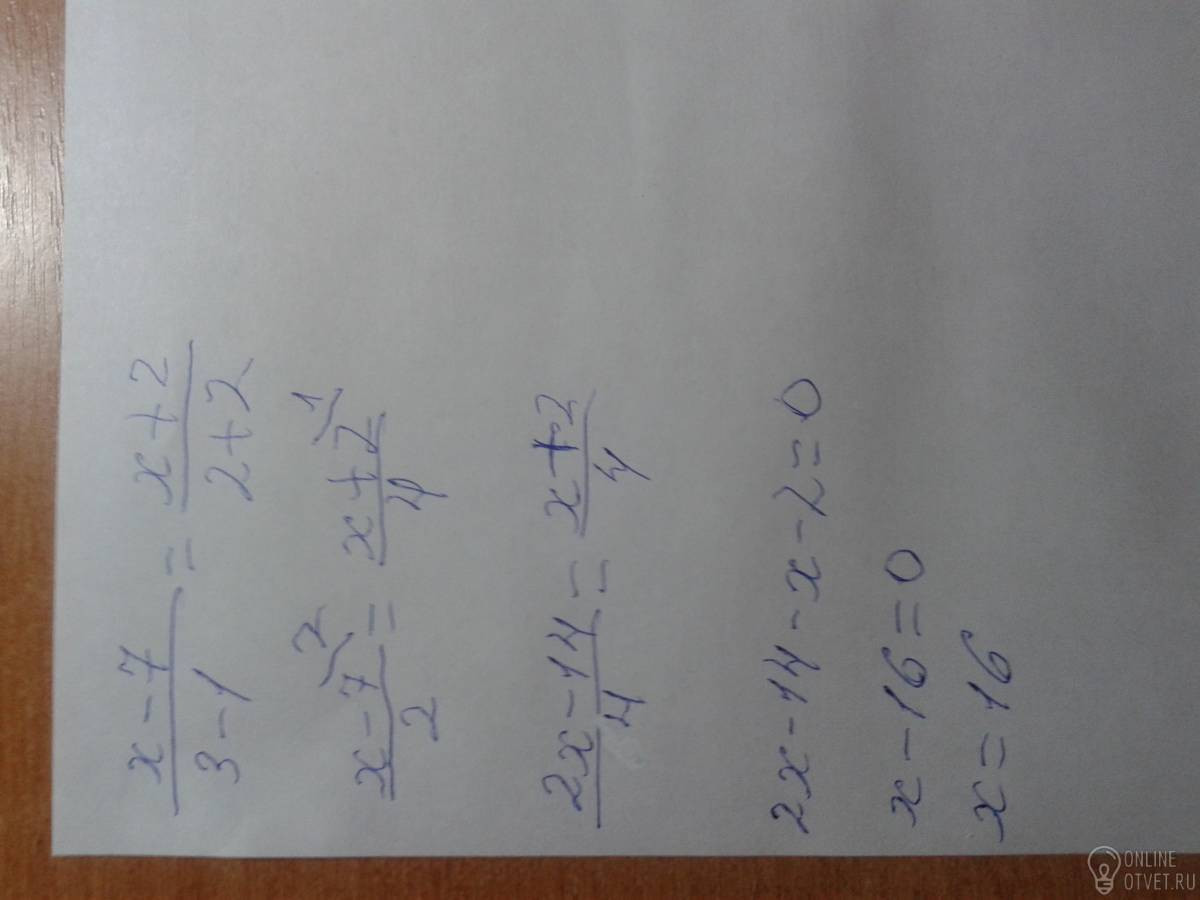 x-7/3-1 = x+2/2+2
x-7/2 2 = x+2/4 1
2x-14/4 = x+2/4
2x-14-x-2=0
x-16=0
x=16
ONLINE
OTVET.RU